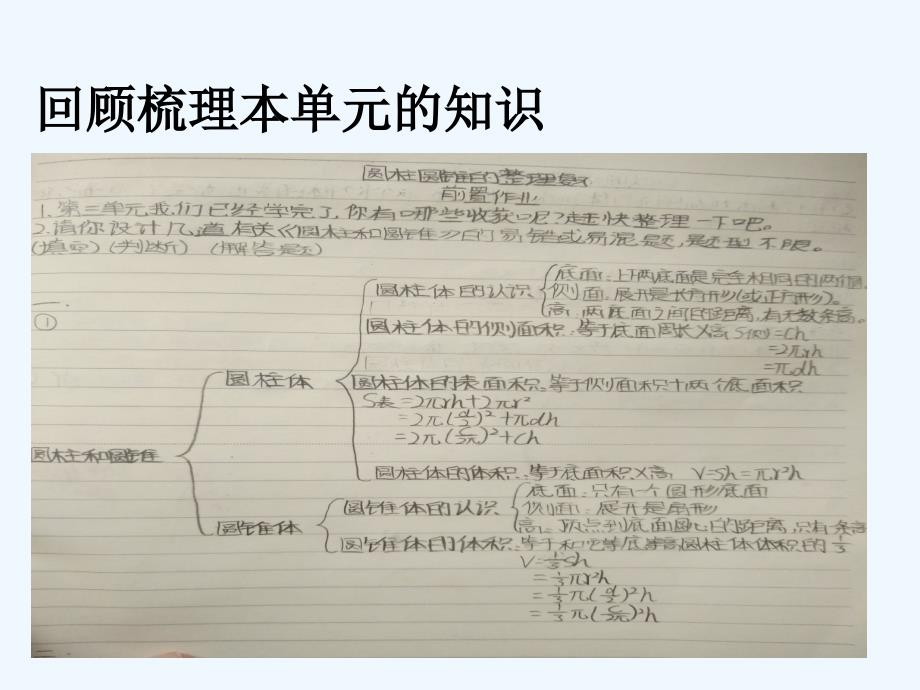 回顾梳理本单元的知识
圆柱圆锥的整理复习
前置作业
1.第三单元我们已经学完了,你有哪些收获呢?赶快整理一下吧。
2.请你设计几道有关《圆柱和圆锥》的易错或易混题,题型不限。
(填空)(判断)(解答题)
一.
①
圆柱和圆锥
圆柱体
圆柱体的认识
底面:上下两底面是完全相同的两个圆
侧面:展开是长方形(或正方形)。
高:两底面之间的距离,有无数条高。
圆柱体的侧面积:等于底面周长×高 S(侧)=Ch
=2πrh
=πdh
圆柱体的表面积:等于侧面积+两个底面积
S表=2πrh+2πr²
=2π(d/2)²+πdh
=2π(C/2π)²+Ch
圆柱体的体积:等于底面积×高 V=Sh=πr²h
圆锥体
圆锥体的认识
底面:只有一个圆形底面
侧面:展开是扇形
高:顶点到底面圆心的距离,只有一条高
圆锥体的体积:等于和它等底等高圆柱体体积的1/3
V=1/3Sh
=1/3πr²h
=1/3π(d/2)²h
=1/3π(C/2π)²h
二